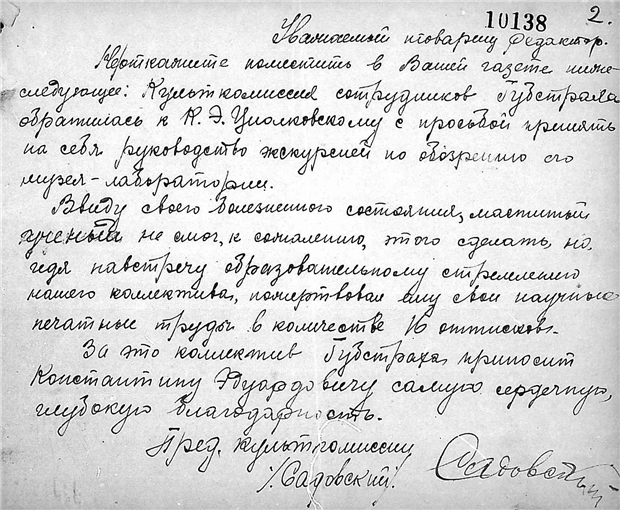 10138 2.
Уважаемый товарищ Редактор.
Не откажите поместить в Вашей газете ниже-
следующее: Культкомиссия сотрудников Губстраха
обратилась к К. Э. Циолковскому с просьбой принять
на себя руководство экскурсией по обозрению его
музея-лаборатории.
Ввиду своего болезненного состояния, маститый
ученый не смог, к сожалению, этого сделать, но
идя навстречу образовательному стремлению
нашего коллектива, пожертвовал ему свои научные
печатные труды в количестве 16 оттисков.
За это коллектив Губстраха приносит
Константину Эдуардовичу самую сердечную,
глубокую благодарность.
Пред. культкомиссии
/Садовский/. Садовский